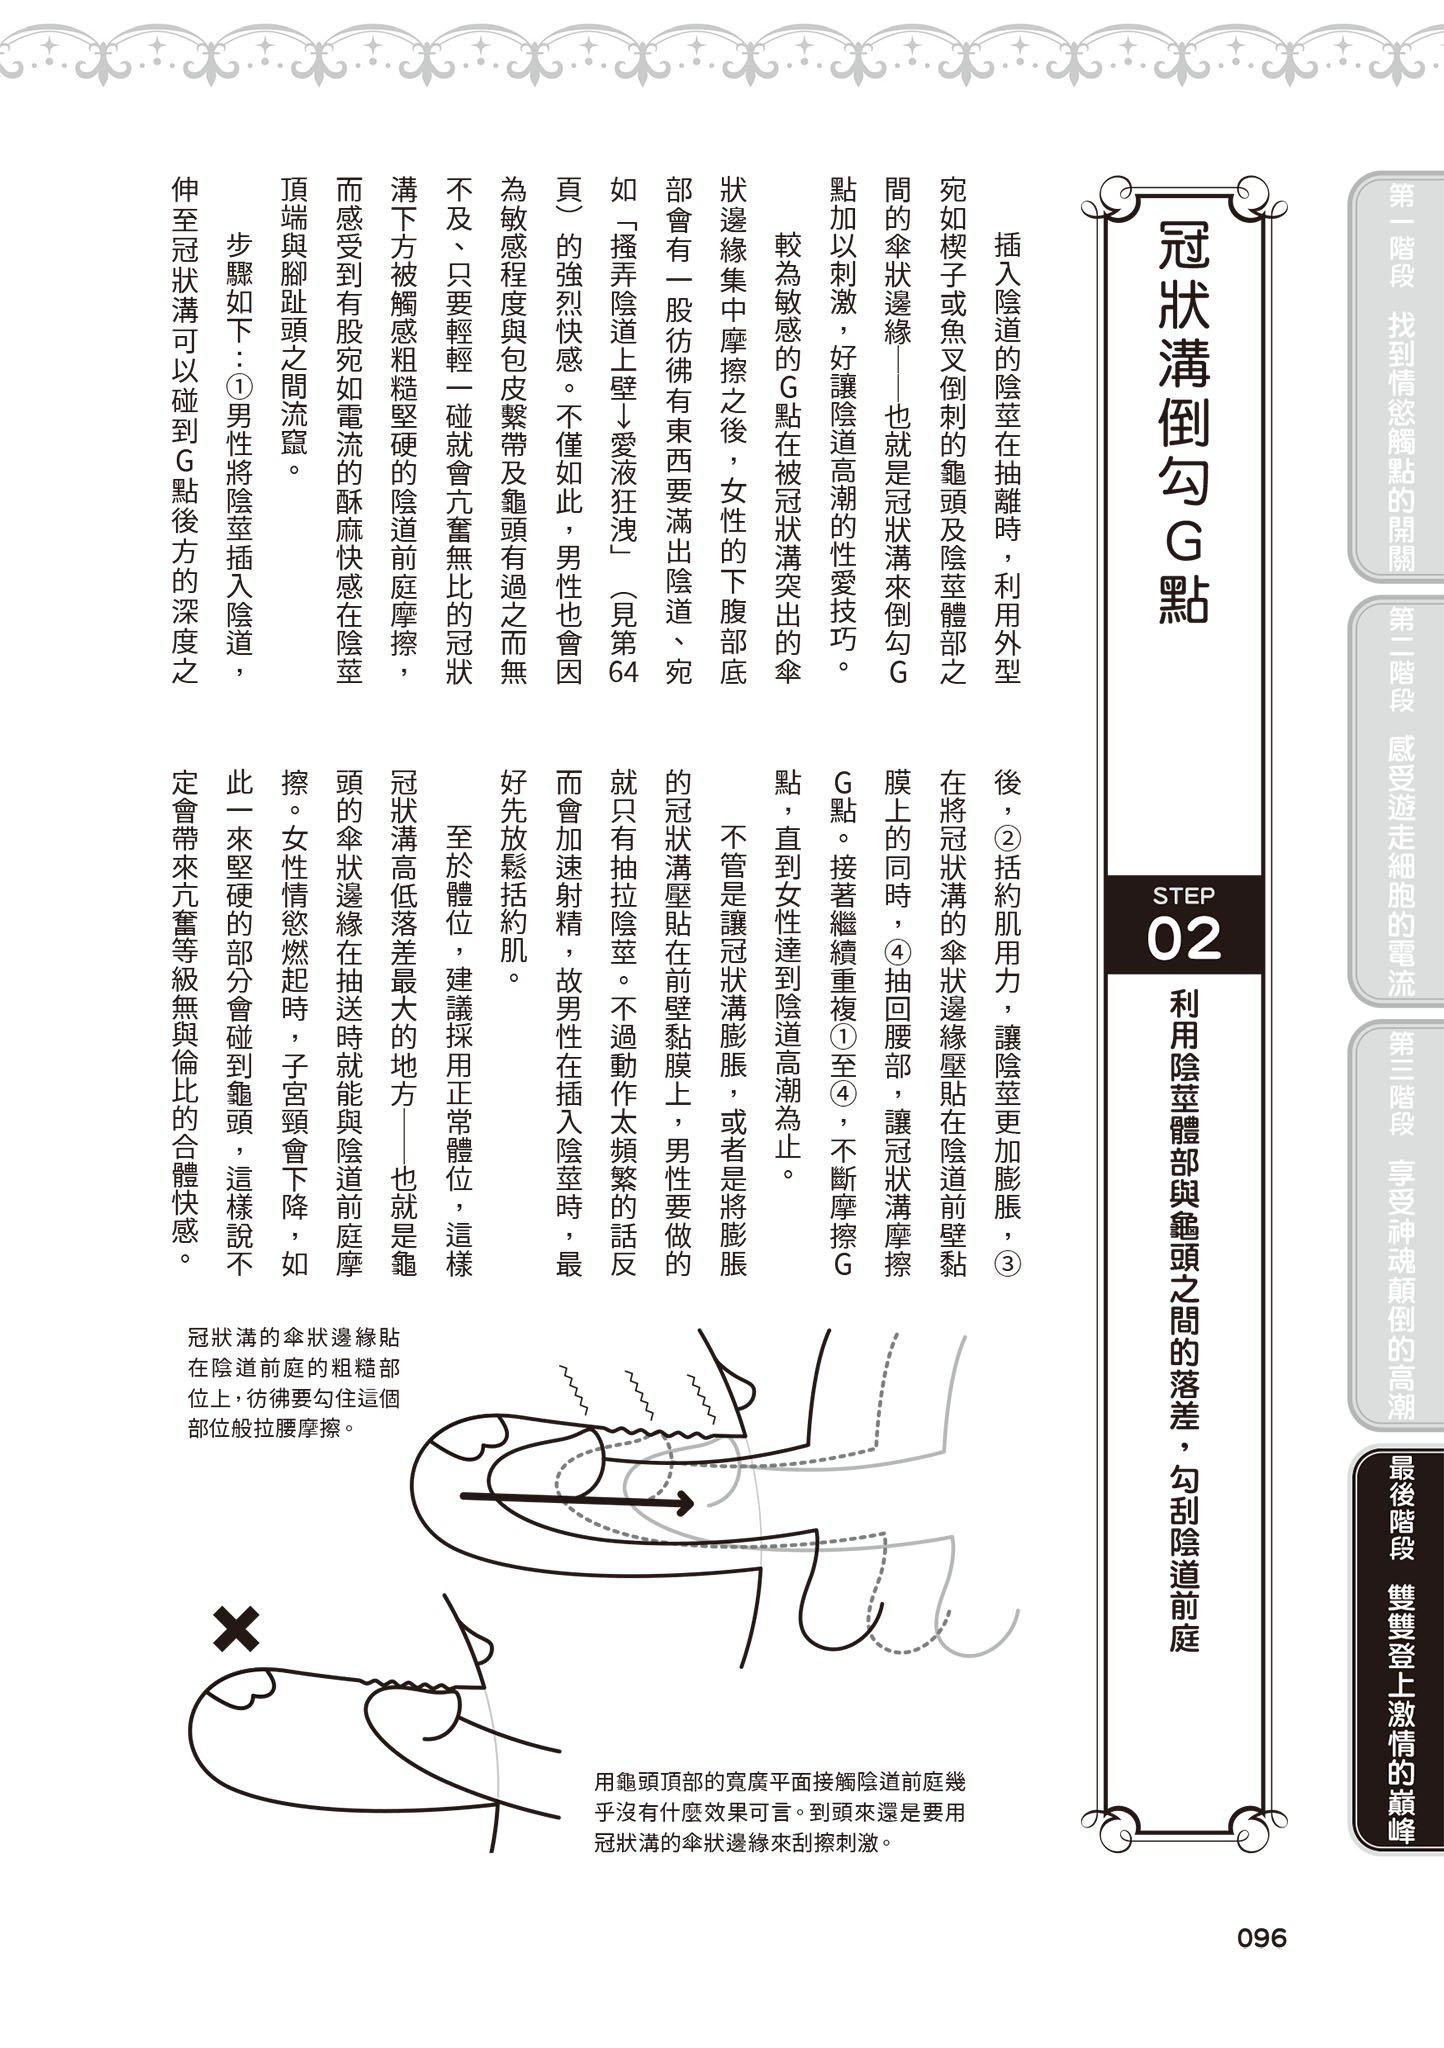 第一階段 找到情慾觸點的開關
第二階段 感受遊走細胞的電流
第三階段 享受神魂顛倒的高潮
最後階段 雙雙登上激情的巔峰
冠狀溝倒勾G點
STEP
02
利用陰莖體部與龜頭之間的落差，勾刮陰道前庭
插入陰道的陰莖在抽離時，利用外型
宛如楔子或魚叉倒刺的龜頭及陰莖體部之
間的傘狀邊緣——也就是冠狀溝來倒勾G
點加以刺激，好讓陰道高潮的性愛技巧。
較為敏感的G點在被冠狀溝突出的傘
狀邊緣集中摩擦之後，女性的下腹部底
部會有一股彷彿有東西要滿出陰道、宛
如「搔弄陰道上壁→愛液狂洩」（見第64
頁）的強烈快感。不僅如此，男性也會因
為敏感程度與包皮繫帶及龜頭有過之而無
不及、只要輕輕一碰就會亢奮無比的冠狀
溝下方被觸感粗糙堅硬的陰道前庭摩擦，
而感受到有股宛如電流的酥麻快感在陰莖
頂端與腳趾頭之間流竄。
步驟如下：①男性將陰莖插入陰道，
伸至冠狀溝可以碰到G點後方的深度之
後，②括約肌用力，讓陰莖更加膨脹，③
在將冠狀溝的傘狀邊緣壓貼在陰道前壁黏
膜上的同時，④抽回腰部，讓冠狀溝摩擦
G點。接著繼續重複①至④，不斷摩擦G
點，直到女性達到陰道高潮為止。
不管是讓冠狀溝膨脹，或者是將膨脹
的冠狀溝壓貼在前壁黏膜上，男性要做的
就只有抽拉陰莖。不過動作太頻繁的話反
而會加速射精，故男性在插入陰莖時，最
好先放鬆括約肌。
至於體位，建議採用正常體位，這樣
冠狀溝高低落差最大的地方——也就是龜
頭的傘狀邊緣在抽送時就能與陰道前庭摩
擦。女性情慾燃起時，子宮頸會下降，如
此一來堅硬的部分會碰到龜頭，這樣說不
定會帶來亢奮等級無與倫比的合體快感。
冠狀溝的傘狀邊緣貼
在陰道前庭的粗糙部
位上，彷彿要勾住這個
部位般拉腰摩擦。
用龜頭頂部的寬廣平面接觸陰道前庭幾
乎沒有什麼效果可言。到頭來還是要用
冠狀溝的傘狀邊緣來刮擦刺激。
096